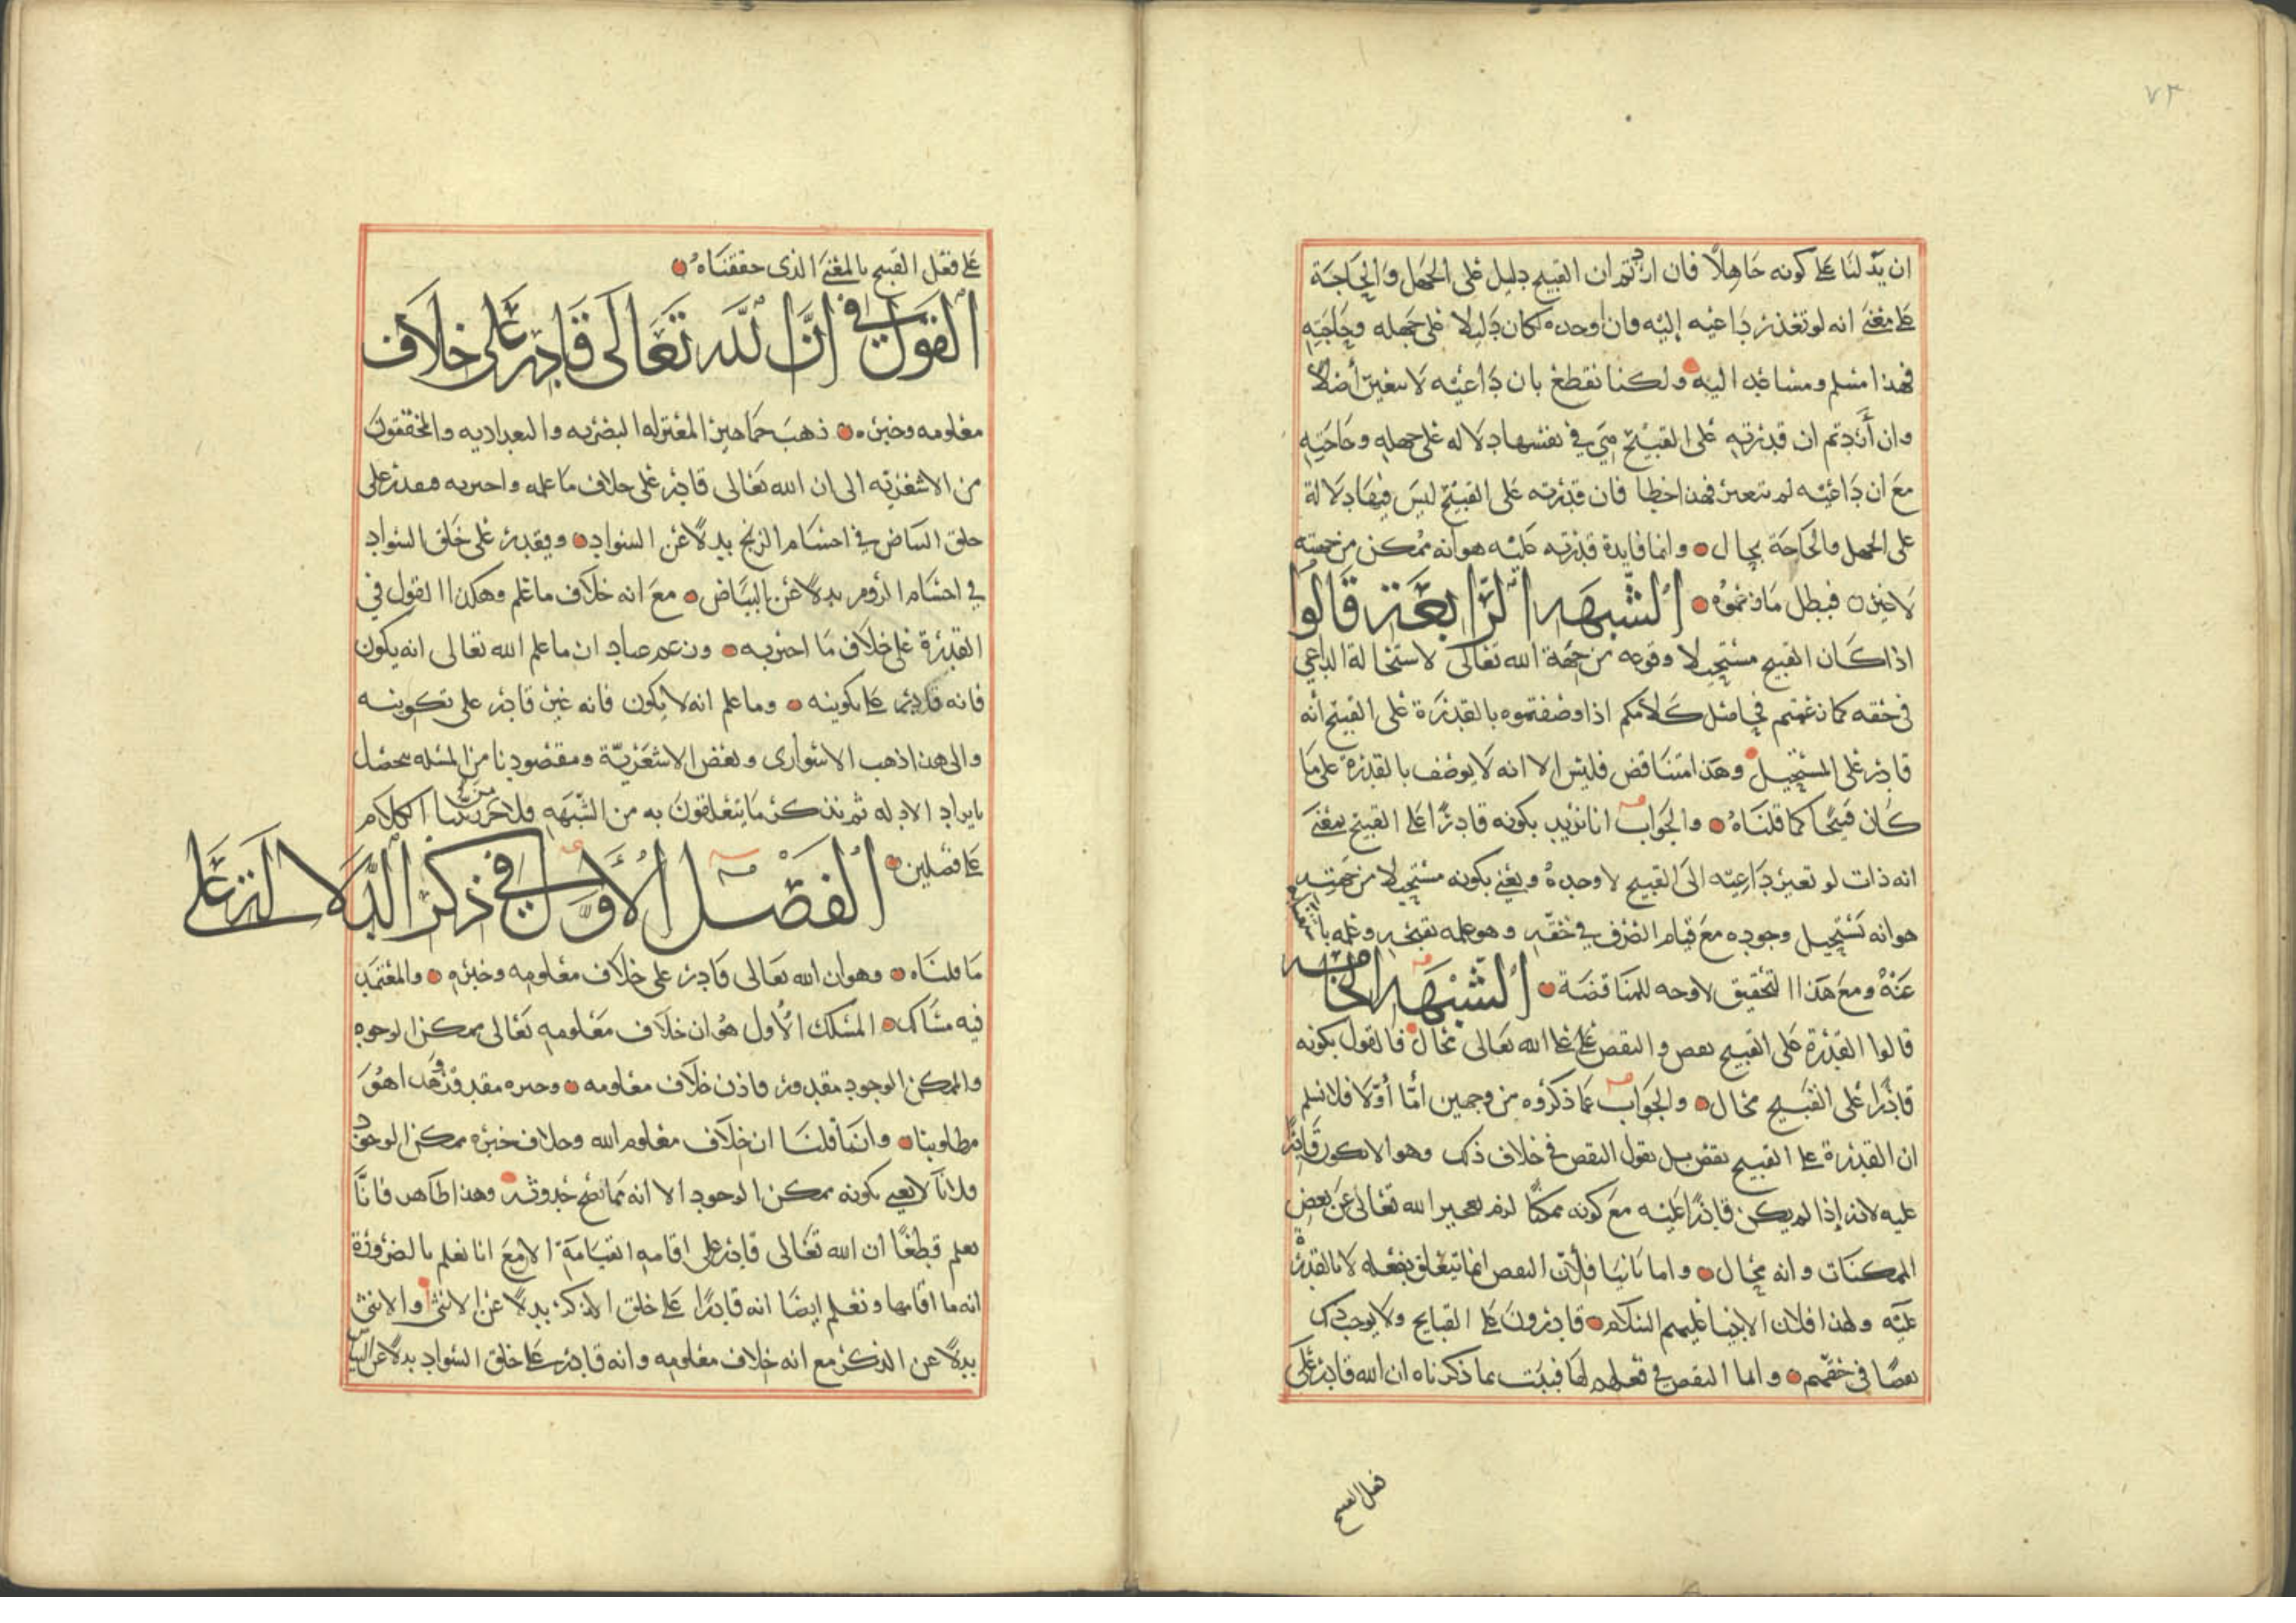 ٧٣
ان يدلنا على كونه جاهلا فان اردتم ان القبيح دليل على الجهل والحاجة
على معنى انه لو تقدر داعيه إليه وان اوجده لكان دليلا على جهله وحاجته
فهذا مسلم ومساعد اليه ولكنا نقطع بان داعيه لا يتعين أصلا
وان أردتم ان قدرته على القبيح هي في نفسها دلاله على جهله وحاجته
مع ان داعيته لم تتعين فهذا خطا فان قدرته على القبيح ليس فيها دلالة
على الجهل والحاجة بحال وانما فايدة قدرته عليه هو انه ممكن من جهته
لا غير فبطل ما زعموه الشبهه الرابعة قالوا
اذا كان القبيح مستحيلا وقوعه من جهة الله تعالى لاستحالة الداعي
في حقه كما زعمتم في امثل كلامكم اذا وصفتموه بالقدرة على القبيح انه
قادر على المستحيل وهذا متناقض فليس الا انه لا يوصف بالقدرة على ما
كان قبيحا كما قلناه والجواب انا نريد بكونه قادرا على القبيح بمعنى
انه ذات لو تعين داعيته الى القبيح لاوجده ويعني بكونه مستحيلا من جهته
هو انه يستحيل وجوده مع قيام الصرف في حقه وهو علمه بقبحه وعلمه باستغنائه
عنه ومع هذا التحقيق لا وجه للمناقضة الشبهه الخامسه
قالوا القدرة على القبيح نقص والنقص على الله تعالى محال فالقول بكونه
قادرا على القبيح محال والجواب عما ذكروه من وجهين أما أولا فلا نسلم
ان القدرة على القبيح نقص بل نقول النقص في خلاف ذلك وهو الا يكون قادرا
عليه لانه إذا لم يكن قادرا عليه مع كونه ممكنا لزم تعجيز الله تعالى عن بعض
الممكنات وانه محال واما ثانيا فلأن النقص انما يتعلق بفعله لا بالقدرة
عليه ولهذا فلان الانبيا عليهم السلام قادرون على القبايح ولا يوجب ذلك
نقصا في حقهم واما النقص في فعلهم لها فثبت بما ذكرناه ان الله قادر على
فعل القبيح
على فعل القبيح بالمعنى الذي حققناه
القول في ان الله تعالى قادر على خلاف
معلومه وخبره ذهب جماهير المعتزله البصريه والبغداديه والمحققون
من الاشعريه الى ان الله تعالى قادر على خلاف ما علمه واخبر به فيقدر على
خلق البياض في اجسام الزنج بدلا عن السواد ويقدر على خلق السواد
في اجسام الروم بدلا عن البياض مع انه خلاف ما علم وهكذا القول في
القدرة على خلاف ما اخبر به وزعم عباد ان ما علم الله تعالى انه يكون
فانه قادر على تكوينه وما علم انه لا يكون فانه غير قادر على تكوينه
والى هذا ذهب الاسواري وبعض الاشعرية ومقصودنا من المسله يحصل
بايراد الادله ثم نذكر ما يتعلقون به من الشبه فلا جرم رتبنا الكلام
على فصلين الفصل الأول في ذكر الدلالة على
ما قلناه وهو ان الله تعالى قادر على خلاف معلومه وخبره والمعتمد
فيه مسالك المسلك الأول هو ان خلاف معلومه تعالى ممكن الوجود
والممكن الوجود مقدور فاذن خلاف معلومه وخبره مقدور وهذا هو
مطلوبنا وانما قلنا ان خلاف معلوم الله وخلاف خبره ممكن الوجود
فلانا لا نعني بكونه ممكن الوجود الا انه مما يصح حدوثه وهذا ظاهر فانا
نعلم قطعا ان الله تعالى قادر على اقامه القيامة الا مع انا نعلم بالضرورة
انه ما اقامها ونعلم ايضا انه قادرا على خلق الذكر بدلا عن الانثى والانثى
بدلا عن الذكر مع انه خلاف معلومه وانه قادر على خلق السواد بدلا عن البياض